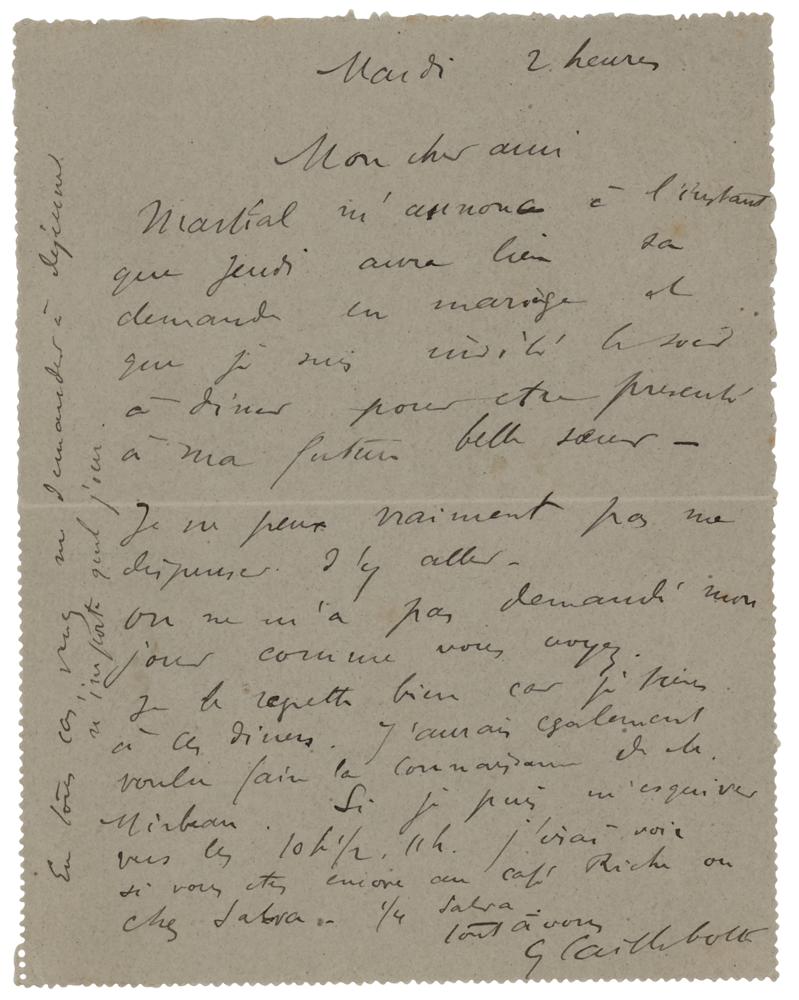 Mardi 2 heures
Mon cher ami
Martial m'annonce à l'instant
que Jeudi aura lieu sa
demande en mariage et
que je suis invité le soir
à diner pour etre presenté
à ma future belle sœur —
Je ne peux vraiment pas me
dispenser d'y aller -
on ne m'a pas demandé mon
jour comme vous voyez.
Je le regrette bien car je tiens
à ces diners. J'aurais egalement
voulu faire la connaissance de M.
Mirbeau. Si je puis m'esquiver
vers les 10h1/2, 11h. j'irai voir
si vous etes encore au café Riche ou
chez
tout à vous
G Caillebotte
En tous cas, venez me demander à dejeuner
n'importe quel jour.